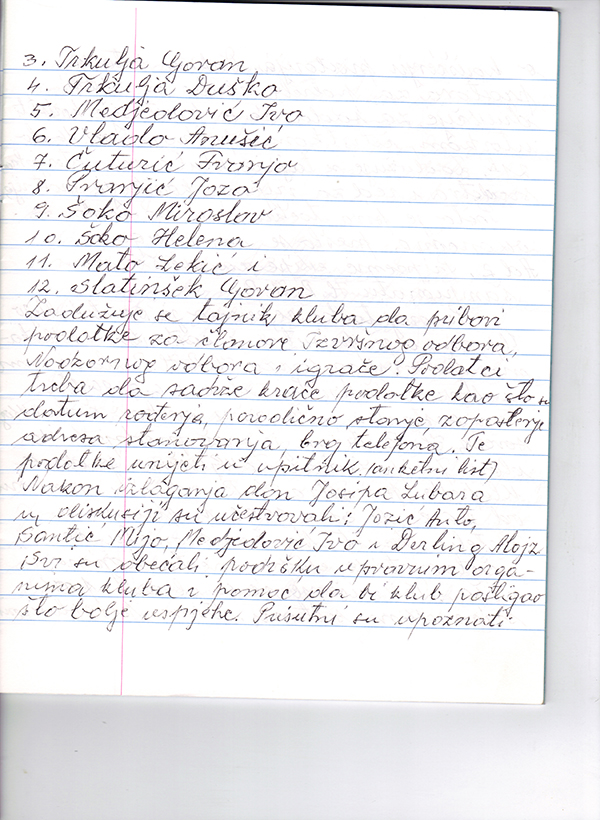 3. Trkulja Goran
4. Trkulja Duško
5. Medjedović Ivo
6. Vlado Anušić
7. Čuturić Franjo
8. Pranjić Joza
9. Šoko Miroslav
10. Šoko Helena
11. Mato Lekić i
12. Slatinšek Goran
Zadužuje se tajnik kluba da pribavi
podatke za članove Izvršnog odbora,
Nadzornog odbora i igrače. Podatci
treba da sadrže kraće podatke kao što su
datum rođenja, porodično stanje, zaposlenje
adresa stanovanja, broj telefona. Te
podatke unijeti u upitnik (anketni list)
Nakon izlaganja don Josipa Lubara
u diskusiji su učestvovali; Jozić Anto,
Šantić Mijo, Medjedović Ivo i Derling Alojz
Svi su obećali podršku upravnim orga-
nima kluba i pomoć da bi klub postigao
što bolje uspjehe. Prisutni su upoznati